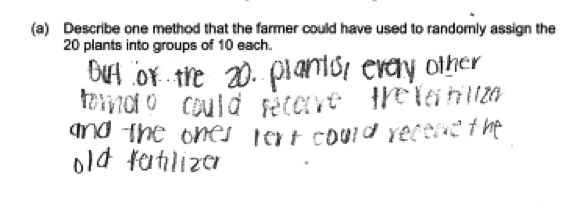 (a) Describe one method that the farmer could have used to randomly assign the
20 plants into groups of 10 each.
Out of the 20 plants, every other
tomato could receive the fertilizer
and the ones left could receive the
old fertilizer